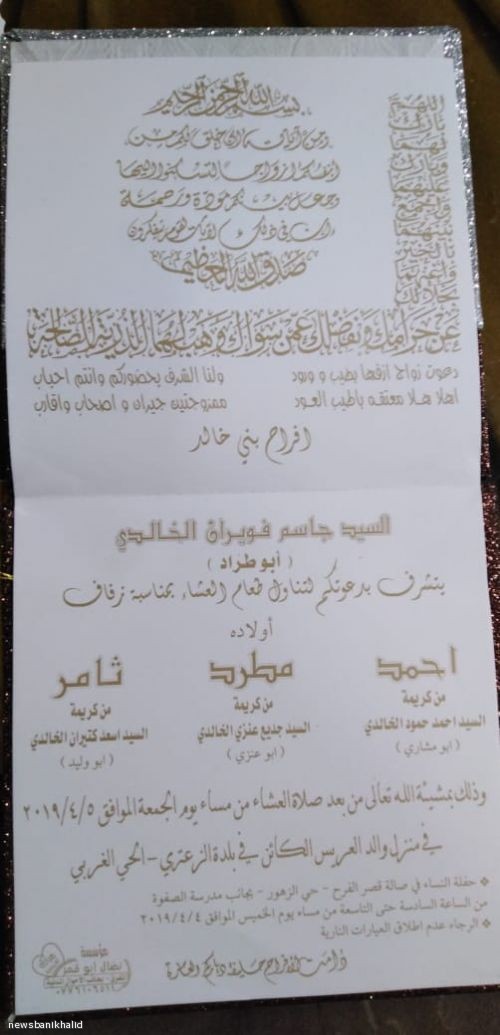 بسم الله الرحمن الرحيم
ومن آياته أن خلق لكم من
أنفسكم أزواجا لتسكنوا إليها
وجعل بينكم مودة ورحمة
إن في ذلك لآيات لقوم يتفكرون
صدق الله العظيم
اللهم
بارك
لهما
وبارك
عليهما
واجمع
بينهما
بالخير
واغنهم
بحلالك
عن حرامك وبفضلك عمن سواك وهب لهما الذرية الصالحة
دعوت زواج ازفها بطيب و ورود ولنا الشرف بحضوركم وانتم احباب
اهلا هلا معتقه باطيب العود ممزوجتين جيران و اصحاب واقارب
افراح بني خالد
السيد جاسم فويران الخالدي
( أبو طراد )
يتشرف بدعوتكم لتناول طعام العشاء بمناسبة زفاف
أولاده
احمد مطرد ثامر
من كريمة من كريمة من كريمة
السيد احمد حمود الخالدي السيد جديع عنزي الخالدي السيد اسعد كتيران الخالدي
( ابو مشاري ) ( ابو عنزي ) ( ابو وليد )
وذلك بمشيئة الله تعالى من بعد صلاة العشاء من مساء يوم الجمعة الموافق ٢٠١٩/٤/٥
في منزل والد العريس الكائن في بلدة الزعتري - الحي الغربي
❖ حفلة النساء في صالة قصر الفرح - حي الزهور - بجانب مدرسة الصفوة
من الساعة السادسة حتى التاسعة من مساء يوم الخميس الموافق ٢٠١٩/٤/٤
❖ الرجاء عدم اطلاق العيارات النارية
دامت الافراح حليفة دياركم العامرة
مؤسسة
نضال ابو قمر
newsbanikhalid